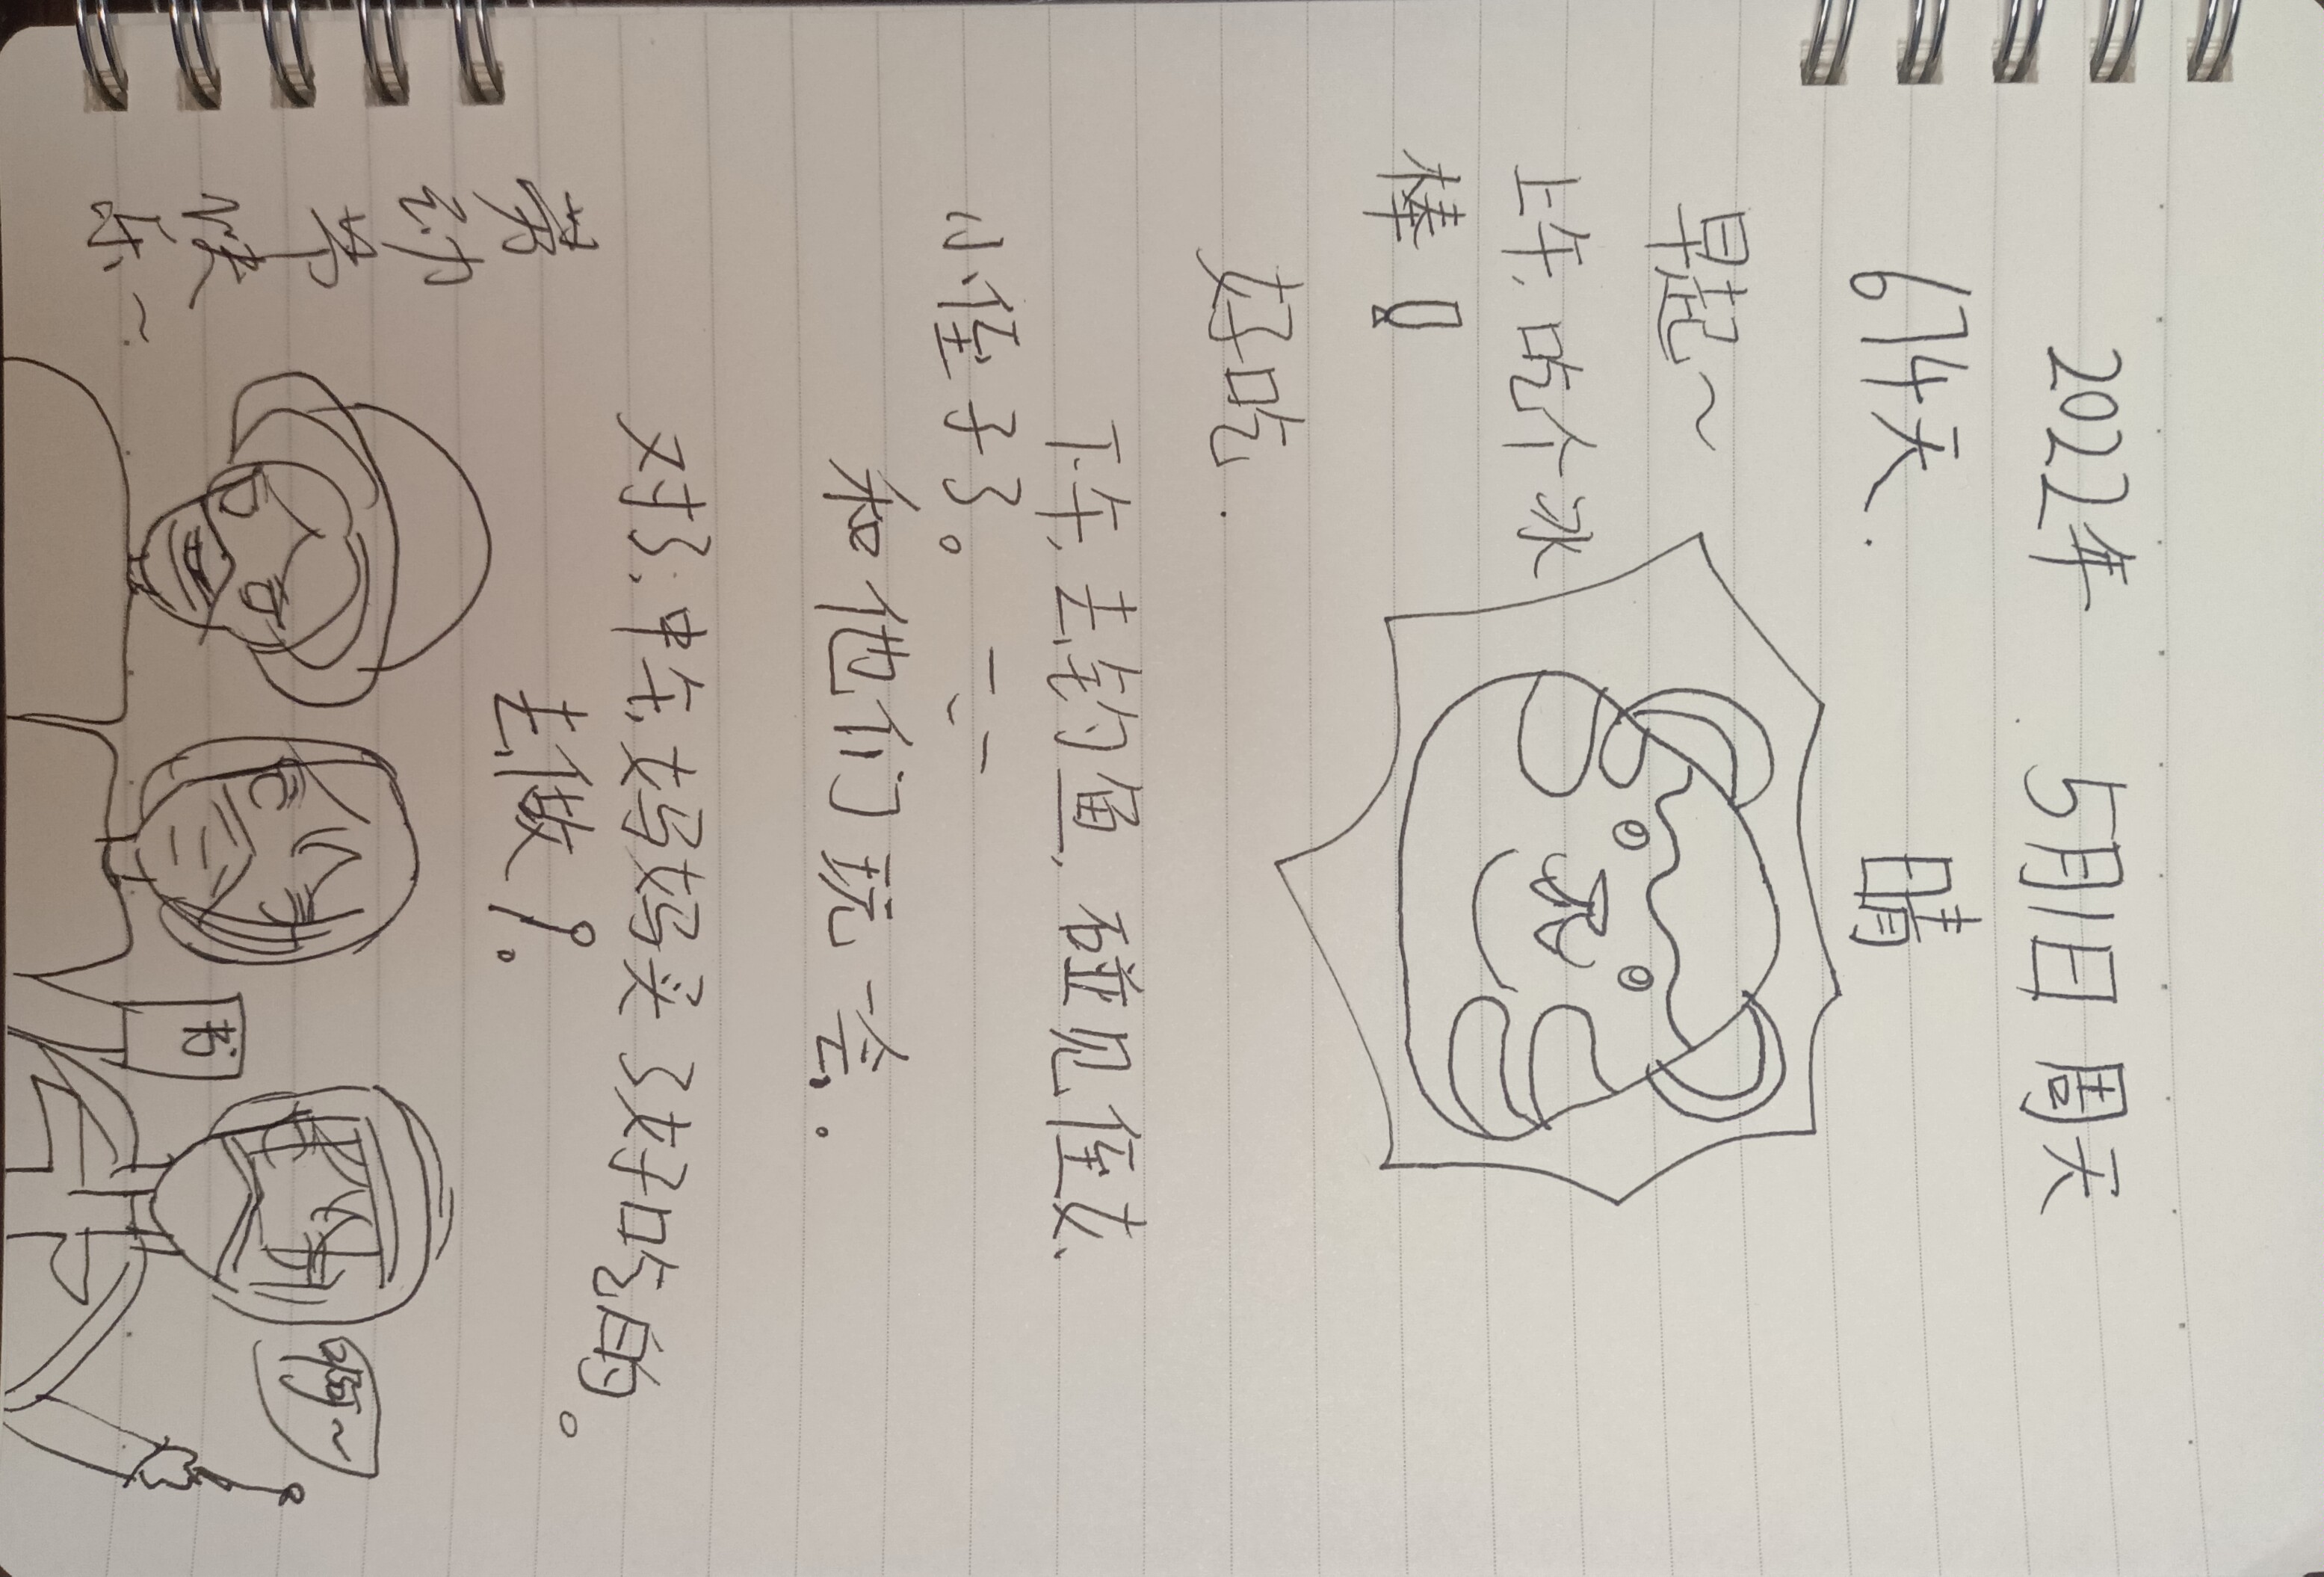 2022年 5月1日 周天
674天. 晴
早起~
上午,吃个冰
棒
好吃.
下午,去钓鱼,碰见侄女、
小侄子了。
和他们玩一会.
对了,中午,妈妈买了好吃的。
去做!
劳动节快乐~
书